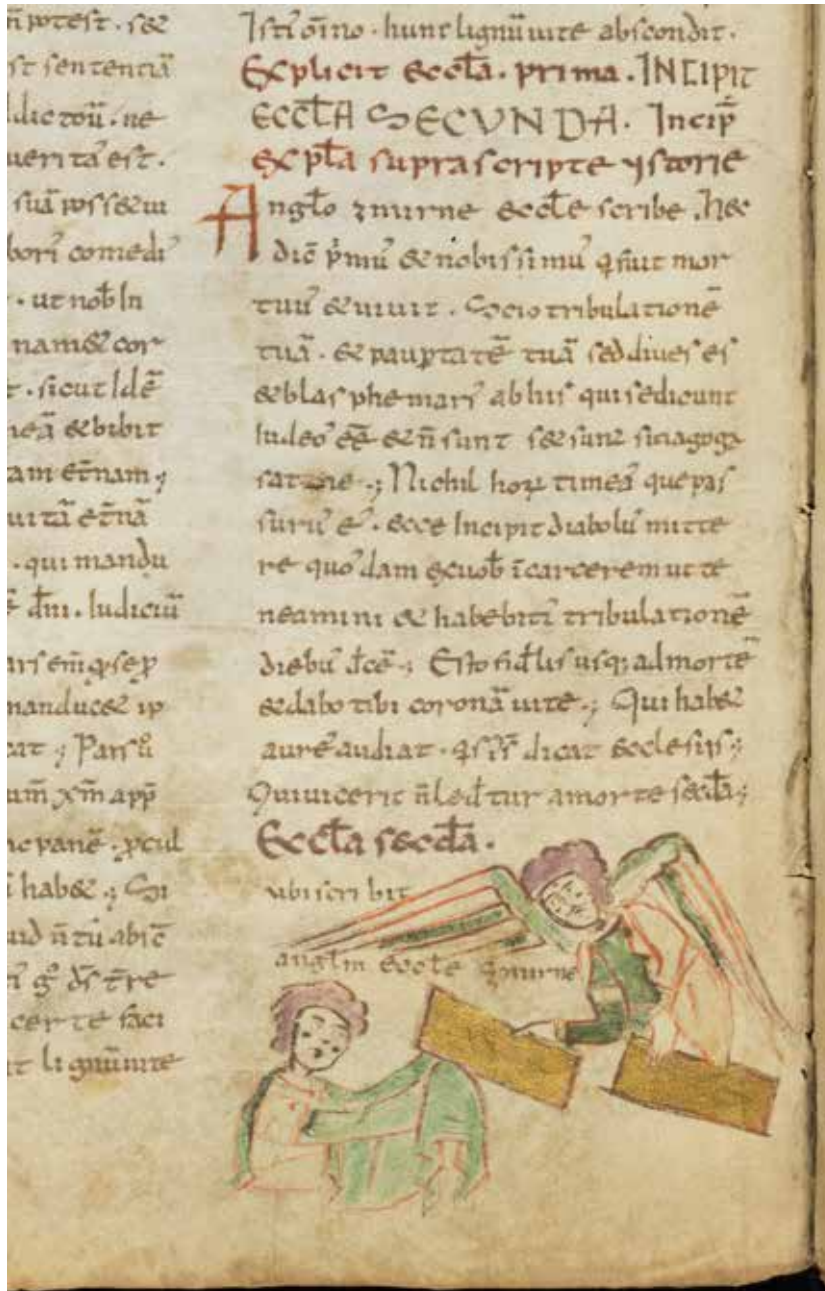 st sententiā
ueritā est.
. ut nobī In
t. sicut Idē
eā & bibit
am et̄nam ;
uitā et̄nā
. qui mandu
dn̄i . Iudiciū
manducet ip
at ; Pars ū
um̄ xp̄m app̄
panē . ꝓcul
habet ; Si
cer te faci
t lignū uite
Isti om̄ino . hunc lignū uite abscondit .
Explicit eccl̄a . prima . INCIPIT
ECCL̄A SECUNDA . Incip̄
expl̄a suprascripte ystorie
Angl̄o zmurne eccl̄e scribe . hec
dic̄ p̄mu' & nobissimu' q̄ fuit mor
tuu' & uiuit . Scio tribulationē
tuā . & paup̄tatē tuā sed diues es
& blasphemari' ab his qui se dicunt
Iudeo' eē & n̄ sunt set sunt sinagoga
satane .; Nichil horꝝ timea' que pas
suru' e' . ecce Incipit diabolu' mitte
re quo'dam ex uob̄ ī carcerem ut te
neamini & habebiti' tribulationē
diebu' dece̅ .; Esto fidl̄is usq; ad mortē
& dabo tibi coronā uite .; Qui habet
aure' audiat . q̄ sp̄s dicat ecclesiis .;
Qui uicerit n̄ led̄tur a morte secd̄a ;
Eccl̄a secd̄a .
ubi scribit
angl̄m eccl̄e zmurne